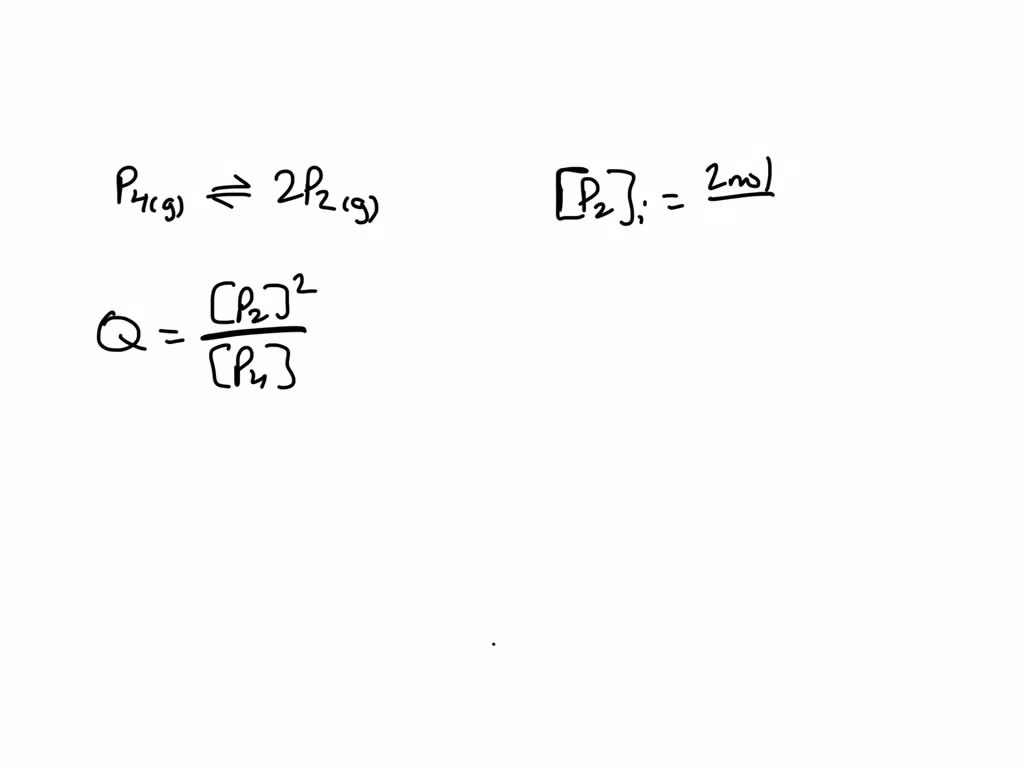 P₄(g) ⇌ 2P₂(g)
[P₂]ᵢ = 2mol
Q = [P₂]² / [P₄]